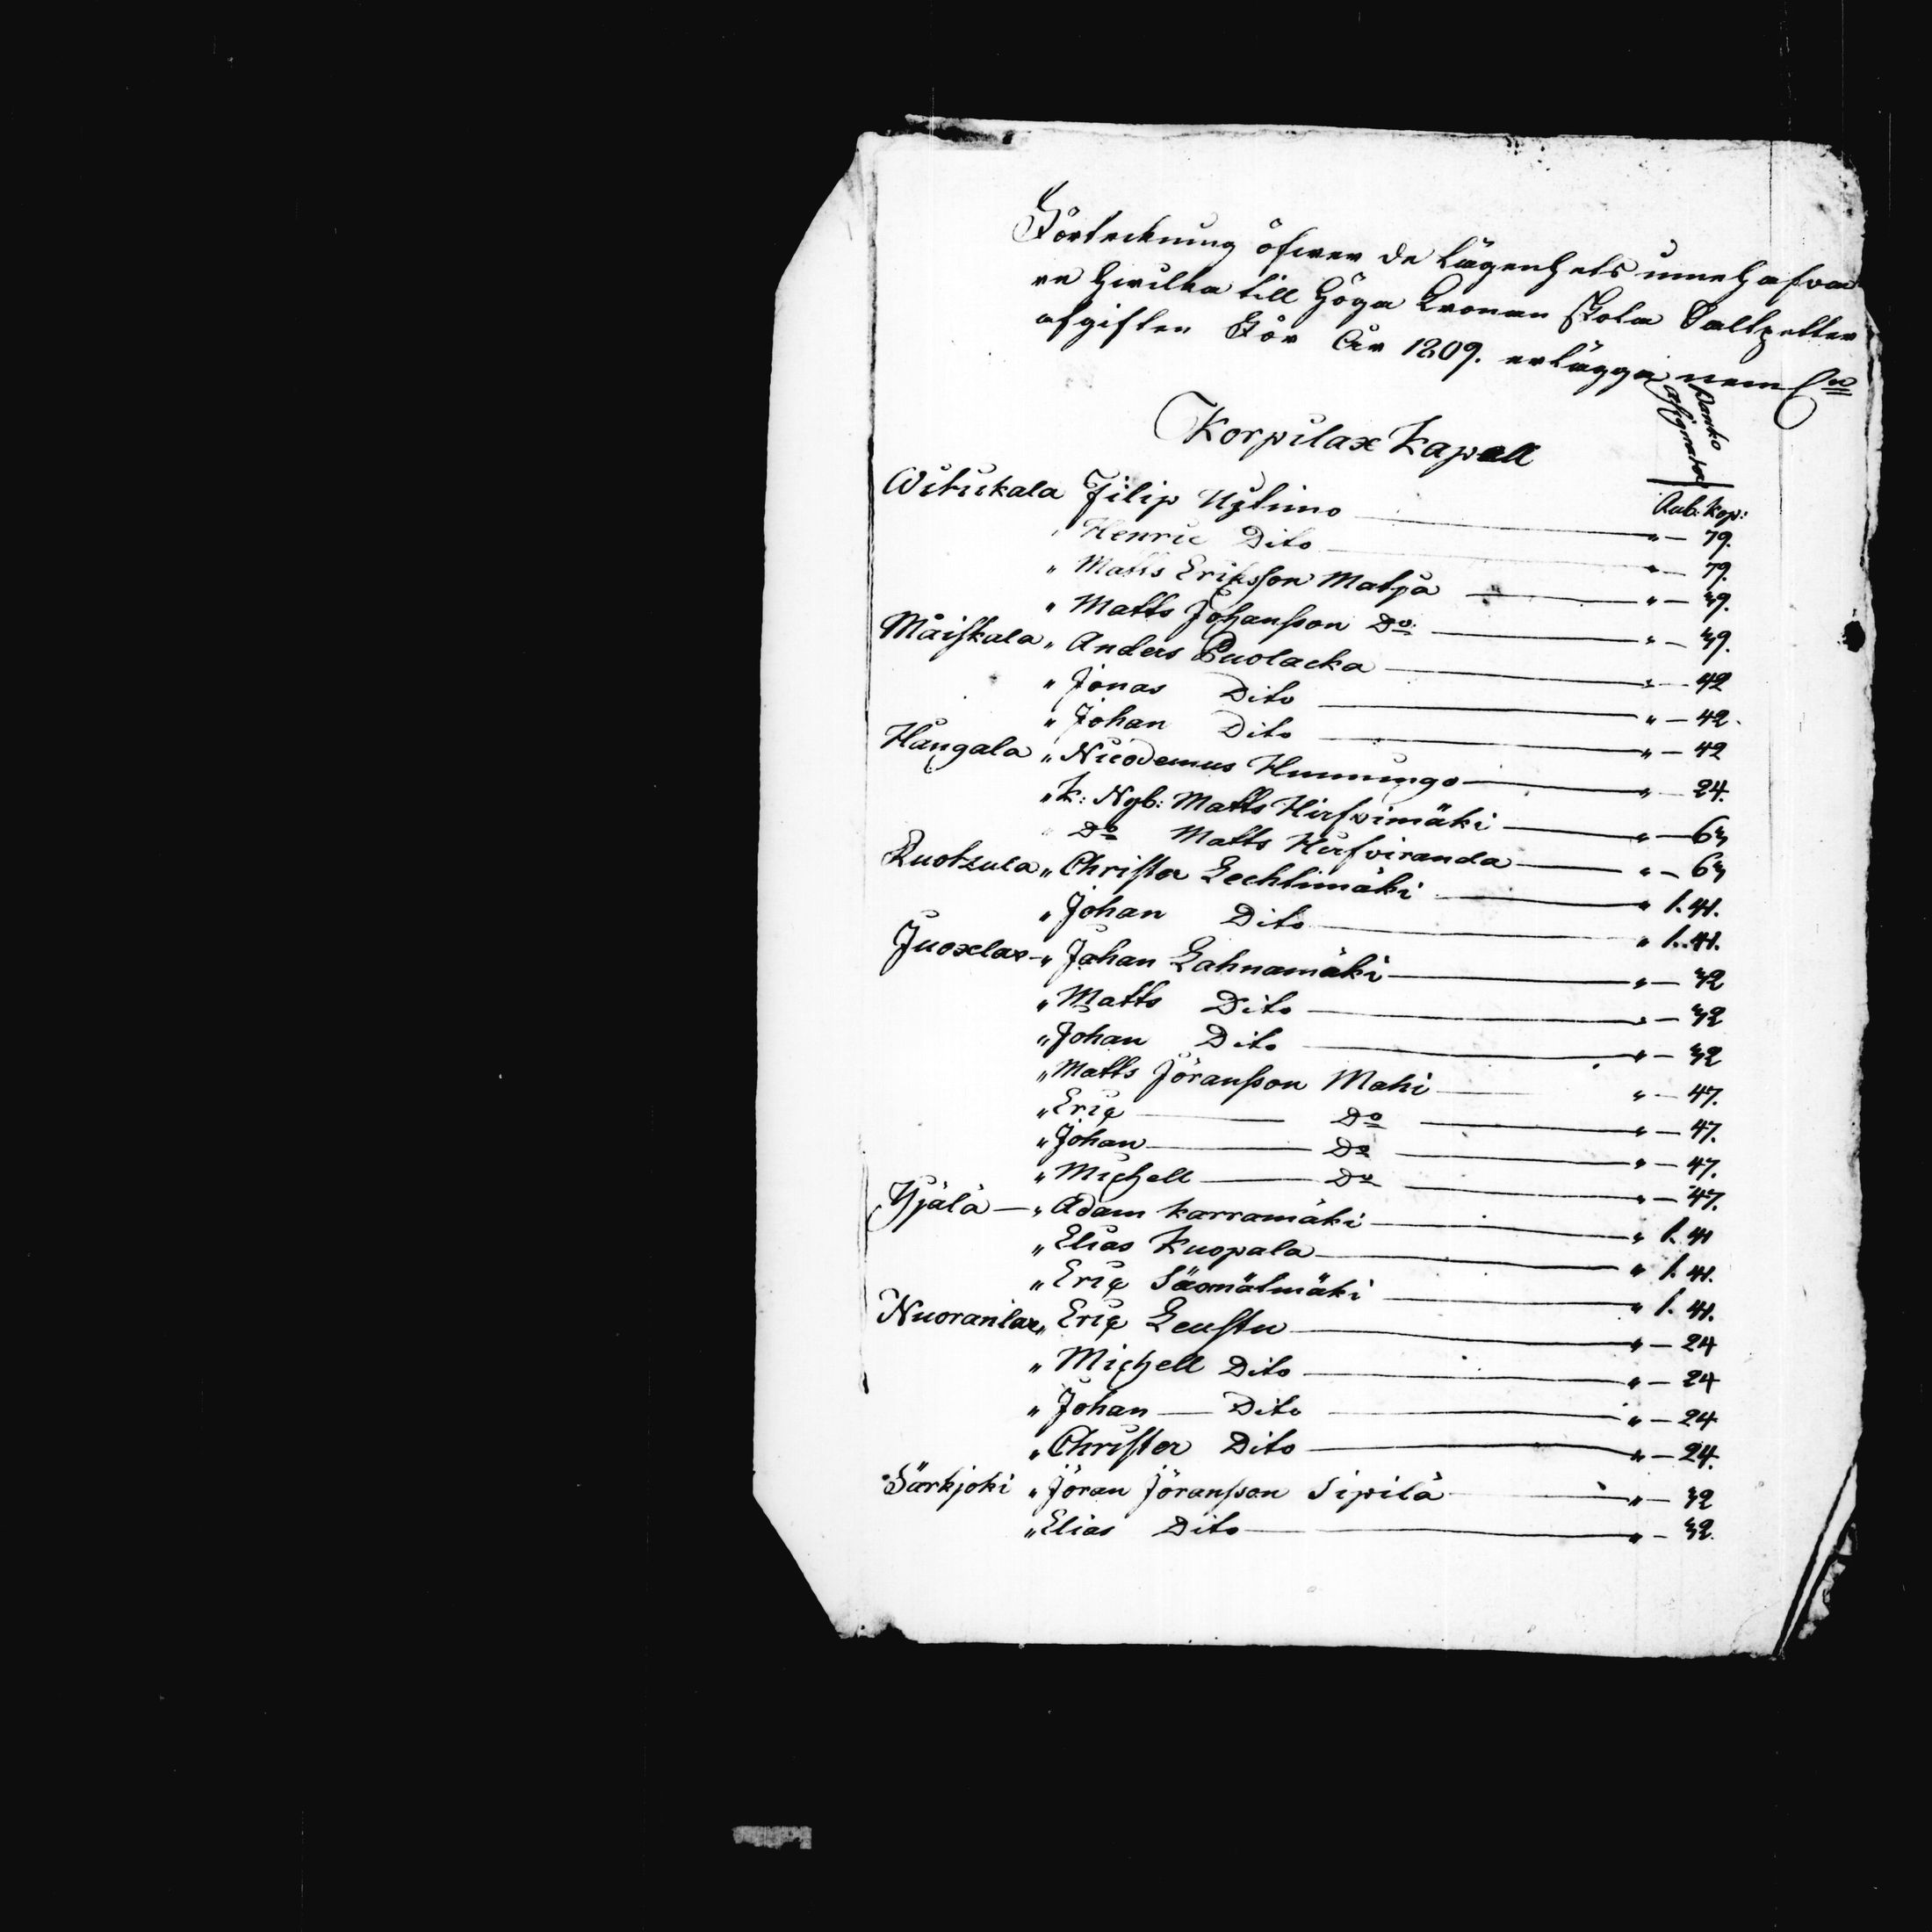 Förteckning öfwer de Lägenhets innehafwa
re hwilka till Höga Kronan skola Saltpetter
afgiften För År 1809. erlägga, nem:
Banko Assignationer
Korpilax Kapell
Rub: Kop:
Witickala Filip Uytimo " — 79.
" Henric Dito " — 79.
" Matts Eriksson Matja " — 39.
" Matts Johansson Do " — 39.
Måiskala " Anders Puolacka " — 42
" Jonas Dito " — 42.
" Johan Dito " — 42
Hangala " Nicodemus Hemmingo " — 24.
" K: Nyb: Matts Hirfvimäki " — 63
" Do Matts Hirfviranda " — 63
Ruotzula " Christer Lechtimäki " 1. 41.
" Johan Dito " 1. 41.
Juoxlax — " Johan Lahnamäki " — 32
" Matts Dito " — 32
" Johan Dito " — 32
" Matts Jöransson Mahi " — 47.
" Eric — Do " — 47.
" Johan — Do " — 47.
" Michell — Do " — 47.
Yjälä — " Adam Karramäki " 1. 41
" Elias Kuopala " 1. 41.
" Eric Säxmälmäki " 1. 41.
Nuoranlax " Eric Leustu " — 24
" Michell Dito " — 24
" Johan — Dito " — 24
" Christer Dito " — 24.
Särkjoki " Jöran Jöransson Sipilä " — 32
" Elias Dito " — 32.